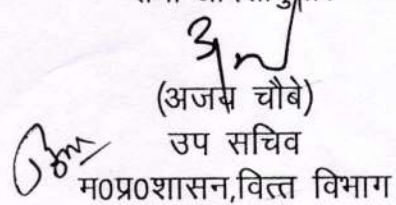 (अजय चौबे)
उप सचिव
म0प्र0शासन,वित्त विभाग